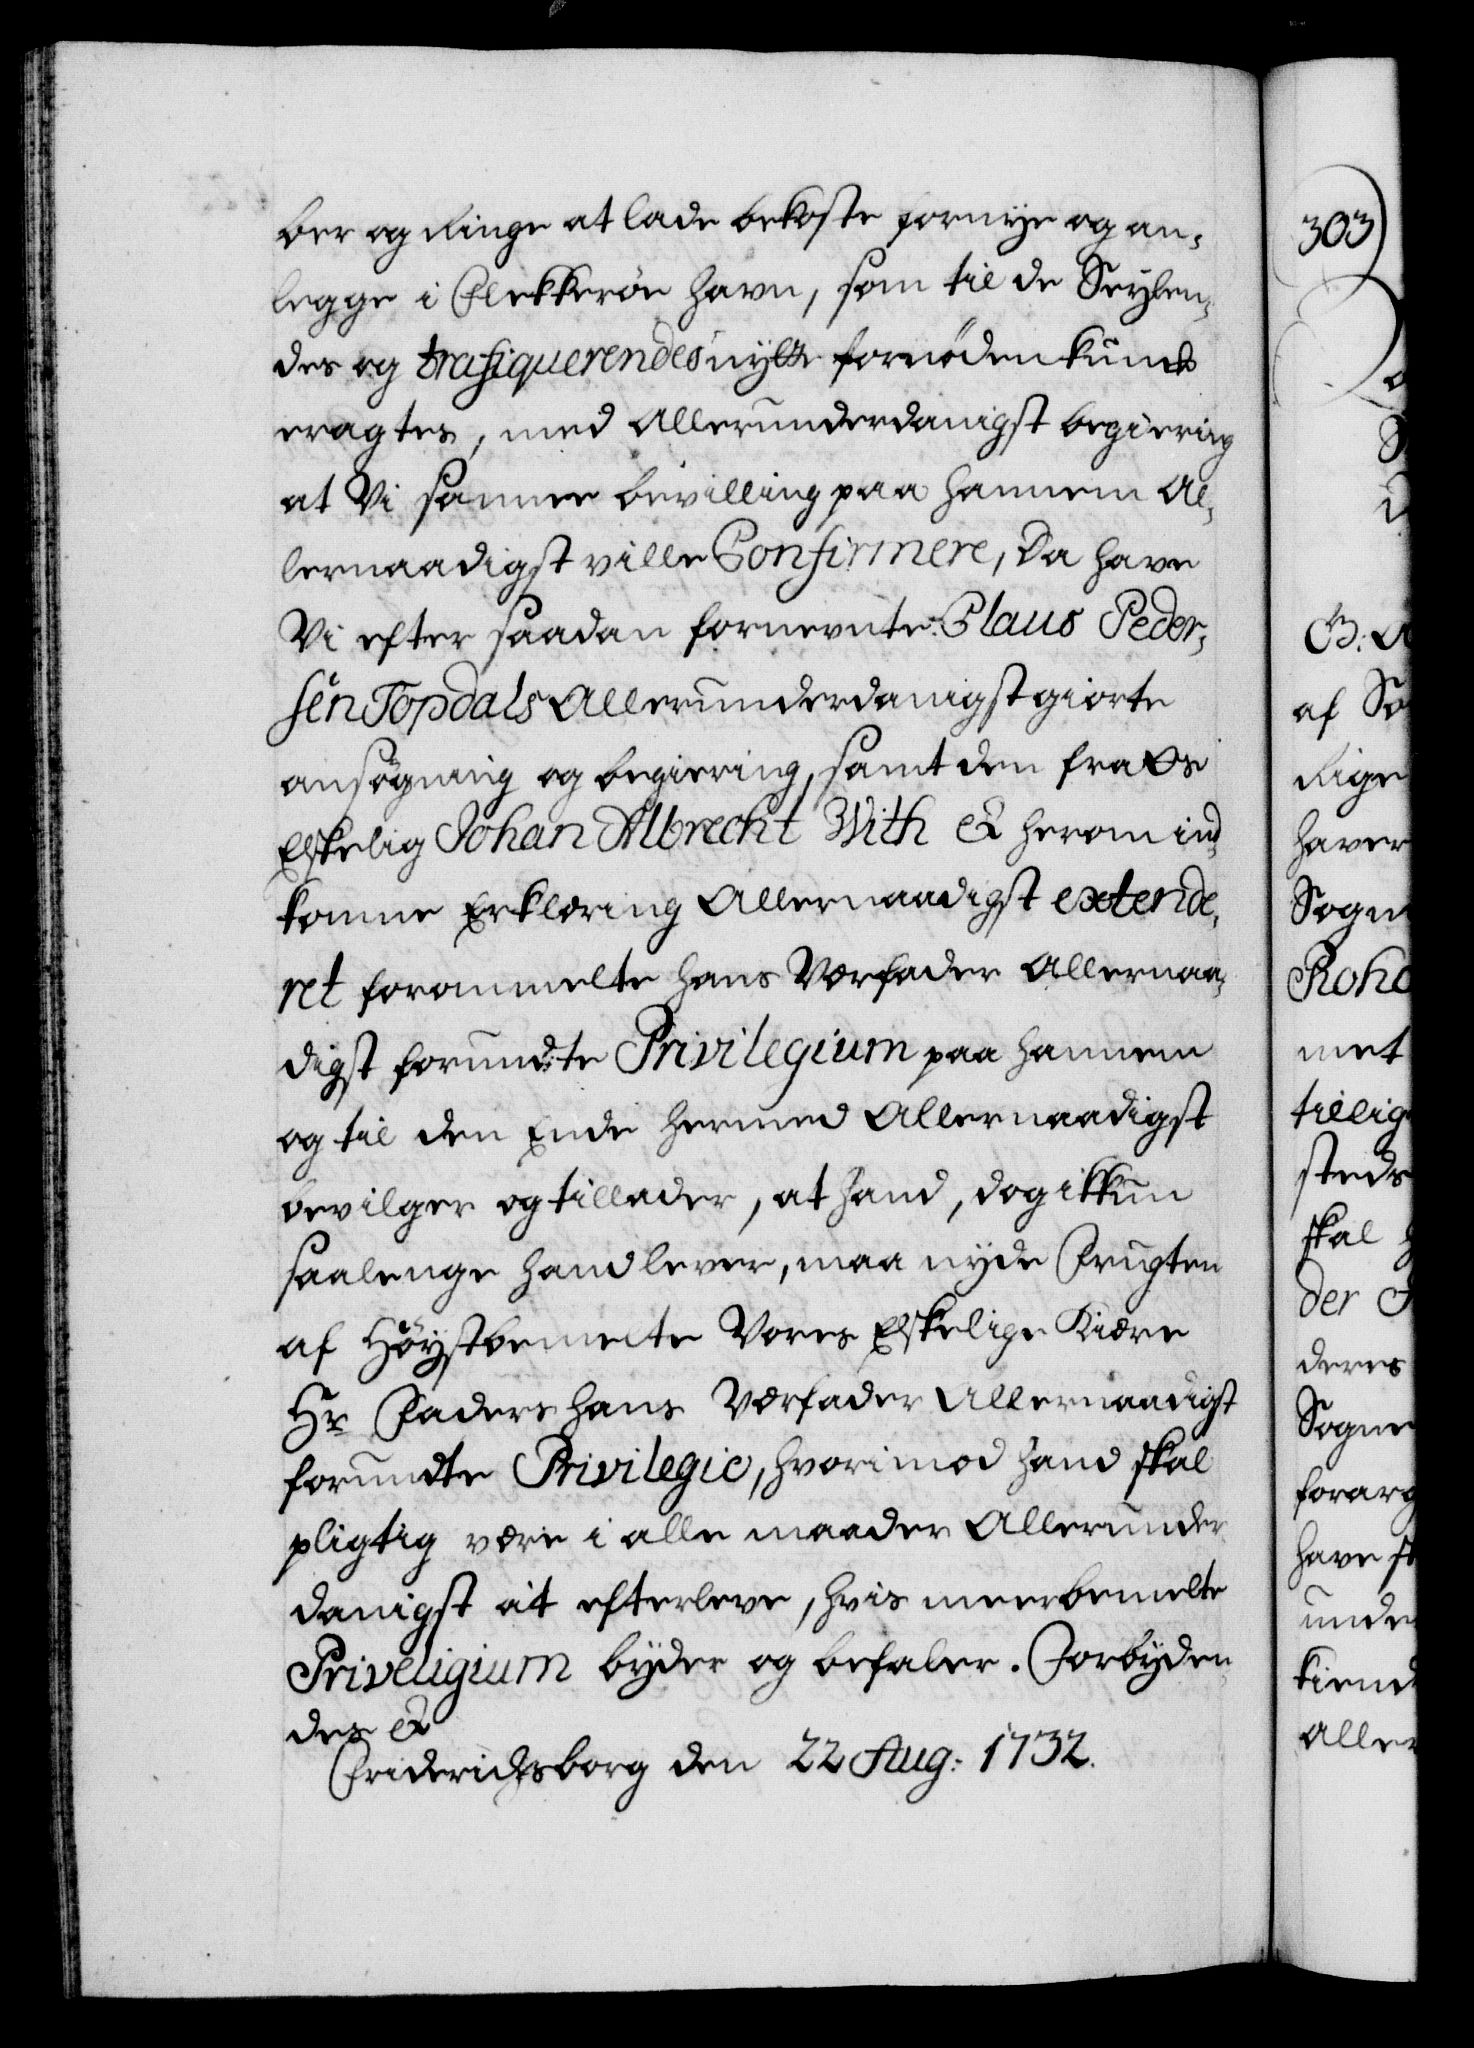 ber og Ringe at lade bekoste fornye og an-
legge i Flekkerøe Havn, som til de Seylen-
des og trafiquerendes nytte fornöden kunde
eragtes, med Allerunderdanigst begiering
at Vi samme bevilling paa hannem Al-
lernaadigst ville Confirmere, Da have
Vi efter saadan fornevnte Claus Peder-
sen Topdals Allerunderdanigst giorte
ansögning og begiering, samt den fra Os
Elskelig Johan Albrecht With &c herom ind-
komne Erklæring Allernaadigst extende-
ret forommelte hans Værfader Allernaa-
digst forundte Privilegium paa hannem
og til den Ende hermed Allernaadigst
bevilger og tillader, at hand, dog ikkun
saalenge hand lever, maa nyde Frugten
af Höystbemelte Vores Elskelige Kiære
Hr Faders hans Værfader Allernaadigst
forundte Privilegie, hvorimod hand skal
pligtig være i alle maader Allerunder
danigst at efterleve, hvis meerbemelte
Priveligium byder og befaler. Forbyden
des &c
Friderichsborg den 22 Aug: 1732.
303)
G: A
af So
Rige
haver
Sogn
met
tillig
steds
skal
der
deres
Sogne
forarg
have st
unde
kiend
Aller